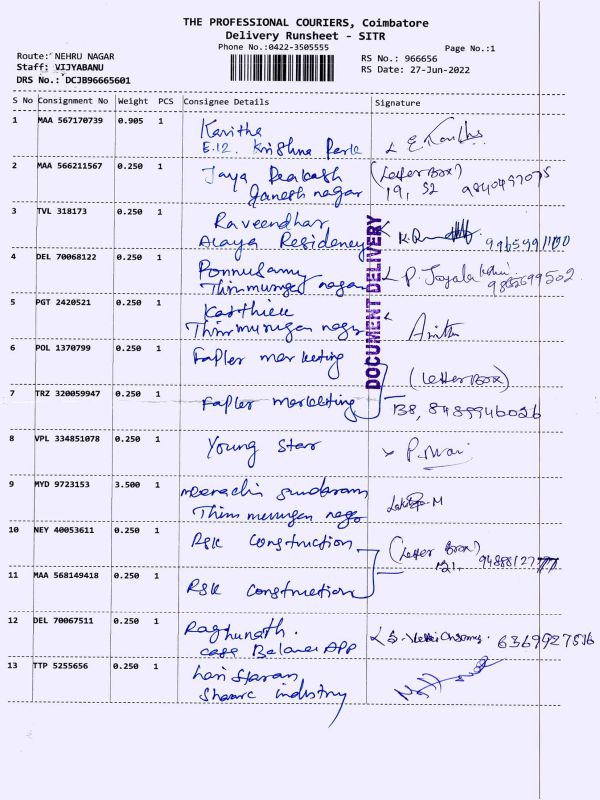 THE PROFESSIONAL COURIERS, Coimbatore
Delivery Runsheet - SITR
Phone No.:0422-3505555
Page No.:1
Route: NEHRU NAGAR
Staff: VIJYABANU
DRS No.: DCJB96665601
RS No.: 966656
RS Date: 27-Jun-2022
S No Consignment No Weight PCS Consignee Details Signature
1 MAA 567170739 0.905 1 Kavitha
E.12. Krishna Park
2 MAA 566211567 0.250 1 Jaya Prakash (Letter Box)
Ganesh nagar 19, S2 9840497075
3 TVL 318173 0.250 1 Raveendhar
Alaya Residency
4 DEL 70068122 0.250 1 Ponnusamy
Thirumurugan nagar
5 PGT 2420521 0.250 1 Karthick
Thirumurugan nagar
DOCUMENT DELIVERY
6 POL 1370799 0.250 1 Fapler marketing (Letter Box)
7 TRZ 320059947 0.250 1 Fapler marketing B8, 8489946026
8 VPL 334851078 0.250 1 Young Star
9 MYD 9723153 3.500 1 meenachi sundaram
Thirumurugan nagar
10 NEY 40053611 0.250 1 RSK Construction (Letter Box)
11 MAA 568149418 0.250 1 RSK Construction
12 DEL 70067511 0.250 1 Raghunath. 6369927516
13 TTP 5255656 0.250 1
industry